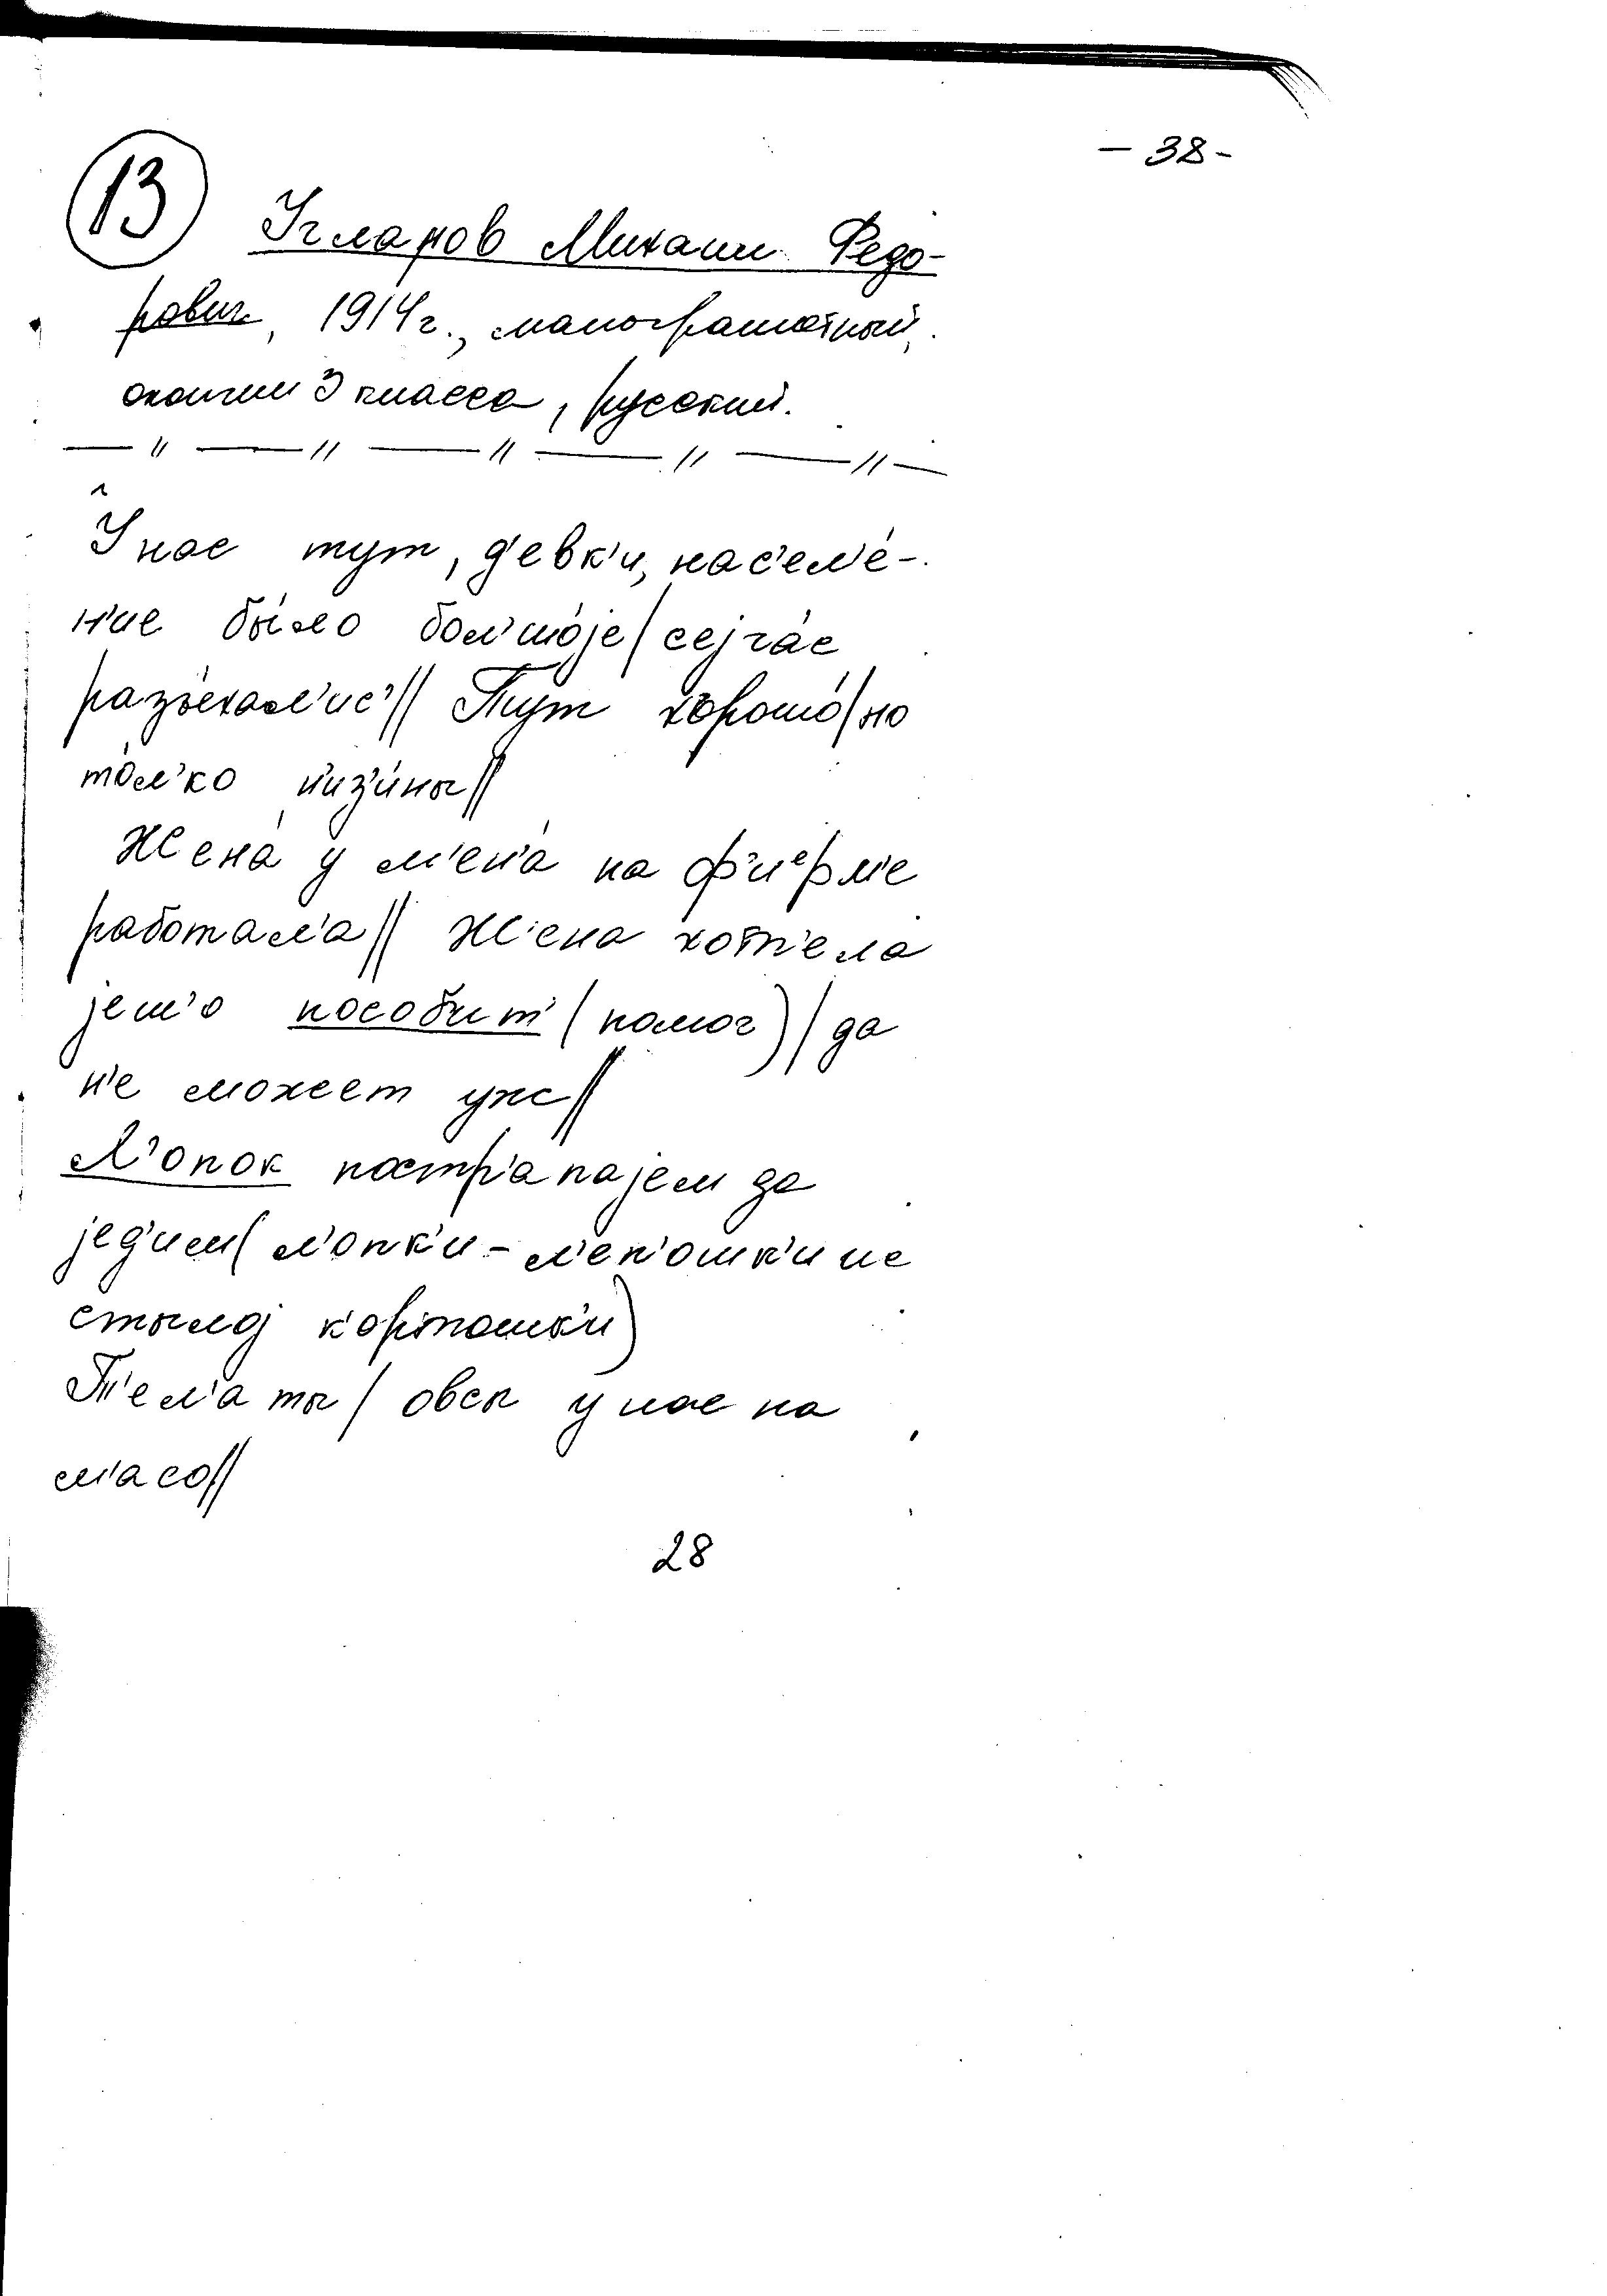 - 38 -
13
Угларов Михаил Федо-
рович, 1914г., малограмотный,
окончил 3 класса, русский.
— " — " — " — " — " —
У нас тут, д'евк'и, нас'ел'е́-
н'ие бы́ло бол'шо́jе/ сеjча́с
разъехал'ис'// Тут хорошо́/ но
то́л'ко н'из'и́ны//
Жена́ у м'ен'а́ на ф'иᵉрм'е
работала// Жена хот'ела
jеш'о пособит' (помог)/ да
н'е можеет уж//
Л'опок постр'апаjем да
jед'им (л'опк'и - л'еп'ошк'и ис
стылоj картошк'и)
Т'ел'аты/ овсы у нас на
м'асо//
28